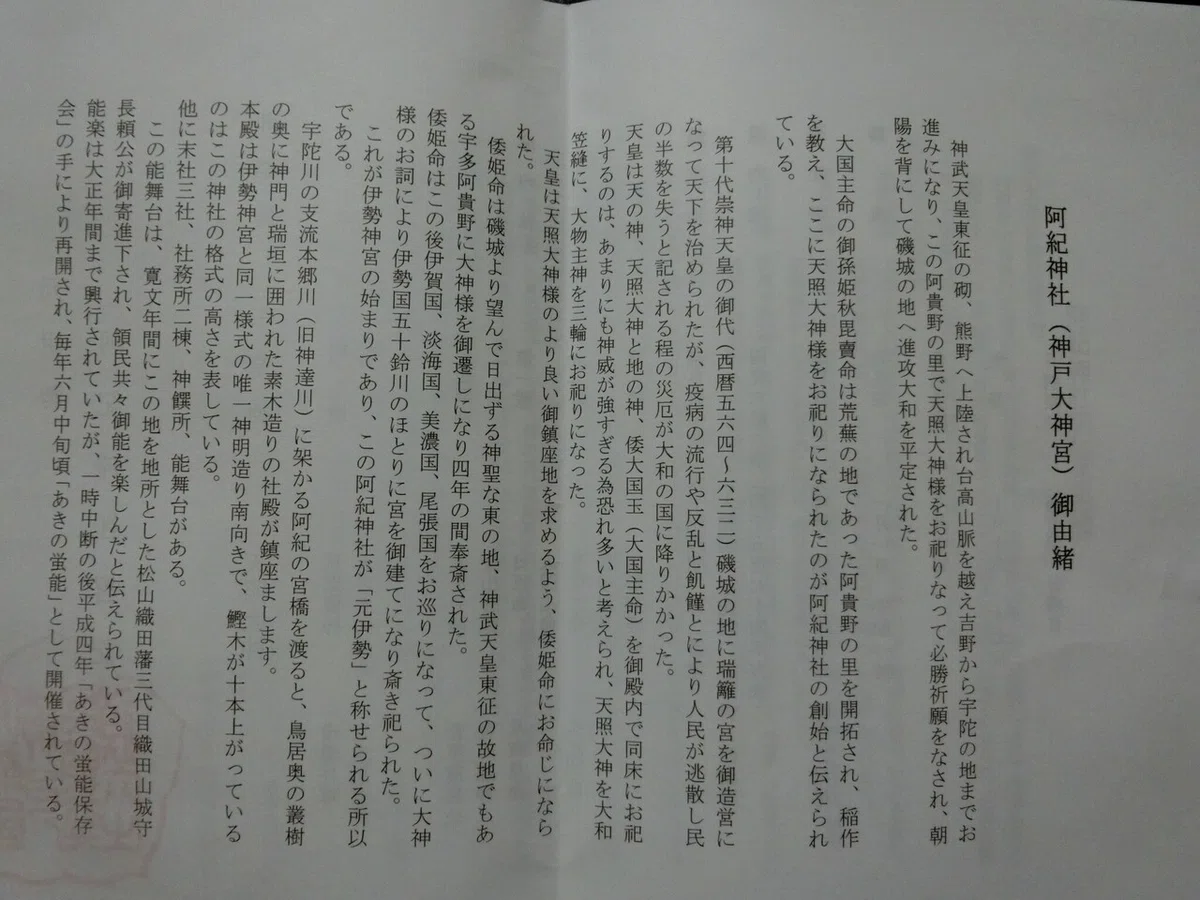 阿紀神社（神戸大神宮）御由緒
神武天皇東征の砌、熊野へ上陸され台高山脈を越え吉野から宇陀の地までお
進みになり、この阿貴野の里で天照大神様をお祀りなって必勝祈願をなされ、朝
陽を背にして磯城の地へ進攻大和を平定された。
大国主命の御孫姫秋毘賣命は荒蕪の地であった阿貴野の里を開拓され、稲作
を教え、ここに天照大神様をお祀りになられたのが阿紀神社の創始と伝えられ
ている。
第十代崇神天皇の御代（西暦五六四～六三二）磯城の地に瑞籬の宮を御造営に
なって天下を治められたが、疫病の流行や反乱と飢饉とにより人民が逃散し民
の半数を失うと記される程の災厄が大和の国に降りかかった。
天皇は天の神、天照大神と地の神、倭大国玉（大国主命）を御殿内で同床にお祀
りするのは、あまりにも神威が強すぎる為恐れ多いと考えられ、天照大神を大和
笠縫に、大物主神を三輪にお祀りになった。
天皇は天照大神様のより良い御鎮座地を求めるよう、倭姫命にお命じになら
れた。
倭姫命は磯城より望んで日出ずる神聖な東の地、神武天皇東征の故地でもあ
る宇多阿貴野に大神様を御遷しになり四年の間奉斎された。
倭姫命はこの後伊賀国、淡海国、美濃国、尾張国をお巡りになって、ついに大神
様のお詞により伊勢国五十鈴川のほとりに宮を御建てになり斎き祀られた。
これが伊勢神宮の始まりであり、この阿紀神社が「元伊勢」と称せられる所以
である。
宇陀川の支流本郷川（旧神達川）に架かる阿紀の宮橋を渡ると、鳥居奥の叢樹
の奥に神門と瑞垣に囲われた素木造りの社殿が鎮座まします。
本殿は伊勢神宮と同一様式の唯一神明造り南向きで、鰹木が十本上がっている
のはこの神社の格式の高さを表している。
他に末社三社、社務所二棟、神饌所、能舞台がある。
この能舞台は、寛文年間にこの地を地所とした松山織田藩三代目織田山城守
長頼公が御寄進下され、領民共々御能を楽しんだと伝えられている。
能楽は大正年間まで興行されていたが、一時中断の後平成四年「あきの蛍能保存
会」の手により再開され、毎年六月中旬頃「あきの蛍能」として開催されている。